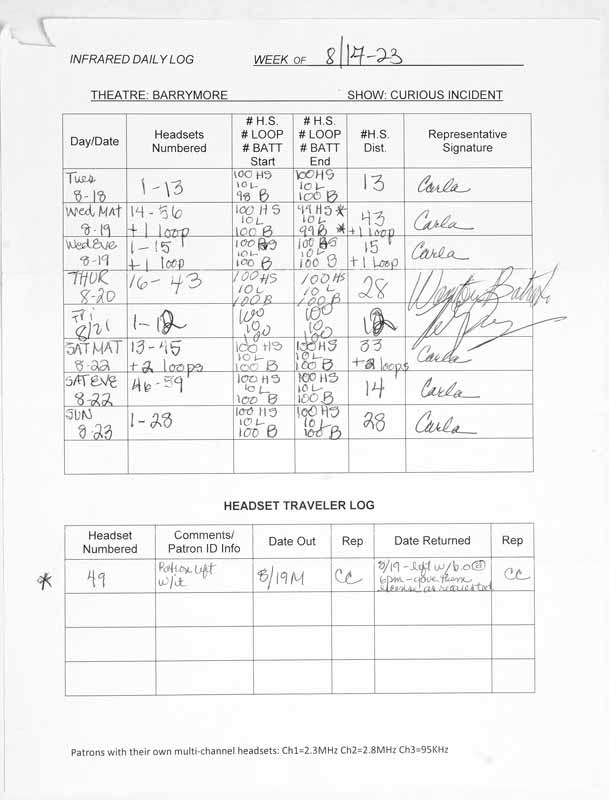 INFRARED DAILY LOG WEEK OF 8/17-23
THEATRE: BARRYMORE SHOW: CURIOUS INCIDENT
Day/Date Headsets Numbered # H.S. # LOOP # BATT Start # H.S. # LOOP # BATT End #H.S. Dist. Representative Signature
Tues 8-18 1-13 100 HS 10 L 98 B 100 HS 10 L 100 B 13 Carla
Wed MAT 8-19 14-56 +1 loop 100 HS 10 L 100 B 99 HS * 10 L 99 B * 43 +1 loop Carla
Wed Eve 8-19 1-15 +1 loop 100 HS 10 L 100 B 100 HS 10 L 100 B 15 +1 Loop Carla
THUR 8-20 16-43 100 HS 10 L 100 B 100 HS 10 L 100 B 28
Fri 8/21 1-12 100 10 100 100 10 100 12
SAT MAT 8-22 13-45 +2 loops 100 HS 10 L 100 B 100 HS 10 L 100 B 33 +2 loops Carla
SAT EVE 8-22 46-59 100 HS 10 L 100 B 100 HS 10 L 100 B 14 Carla
SUN 8-23 1-28 100 HS 10 L 100 B 100 HS 10 L 100 B 28 Carla
HEADSET TRAVELER LOG
Headset Numbered Comments/ Patron ID Info Date Out Rep Date Returned Rep
* 49 Patron left w/it 8/19M CC 8/19 - left w/b.o @ 6pm - gave them license as requested CC
Patrons with their own multi-channel headsets: Ch1=2.3MHz Ch2=2.8MHz Ch3=95KHz